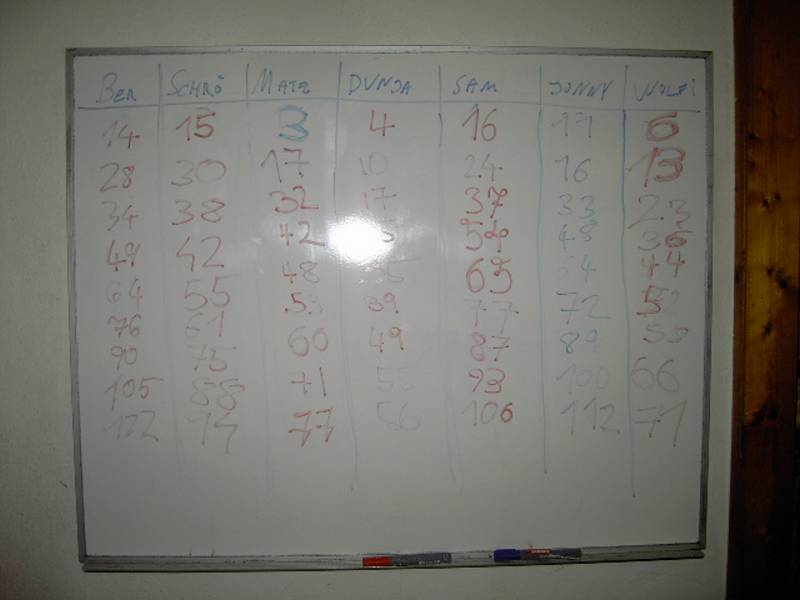 BER SCHRÖ MATZ DUNJA SAM JONNY WOLFI
14 15 3 4 16 11 6
28 30 17 10 24 16 13
34 38 32 17 37 33 23
49 42 42 54 48 36
64 55 48 65 44
76 61 53 39 77 72 52
90 75 60 49 87 89 58
105 88 71 55 93 100 66
122 77 56 106 112 71